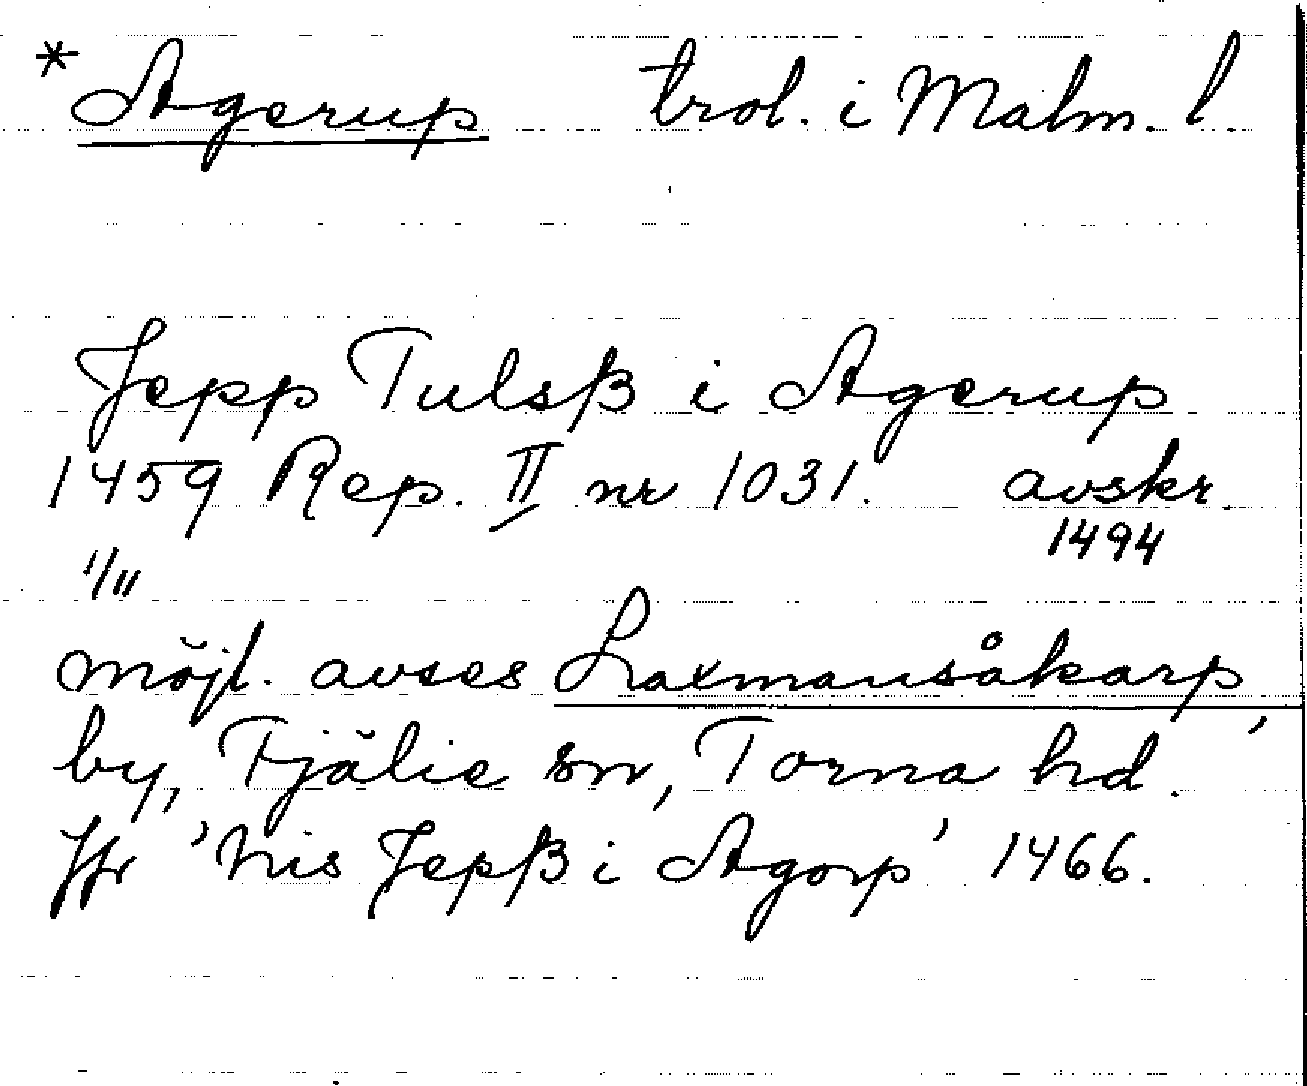 * Agerup trol. i Malm. l.
Jepp Tulsß i Agerup
1459 Rep. II nr 1031. avskr.
1/11 1494
möjl. avses Laxmansåkarp,
by, Fjälie sn, Torna hd.
Jfr 'Nis Jepß i Agorp' 1466.